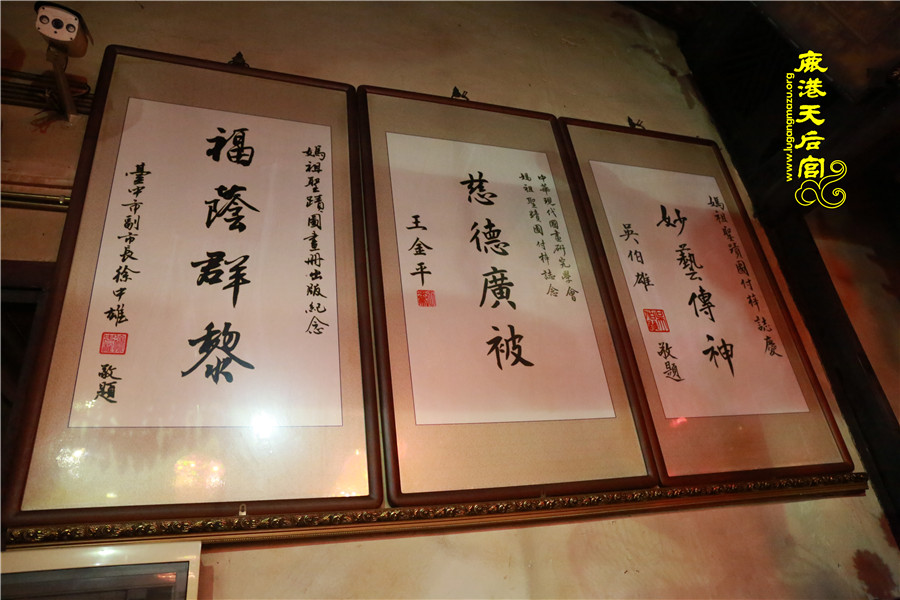 媽祖聖蹟圖畫冊出版紀念
福蔭群黎
臺中市副市長徐中雄
敬題
中華現代國畫研究學會
媽祖聖蹟圖付梓誌念
慈德廣被
王金平
媽祖聖蹟圖付梓誌慶
妙藝傳神
吳伯雄
敬題
鹿港天后宮
www.lugangmazu.org